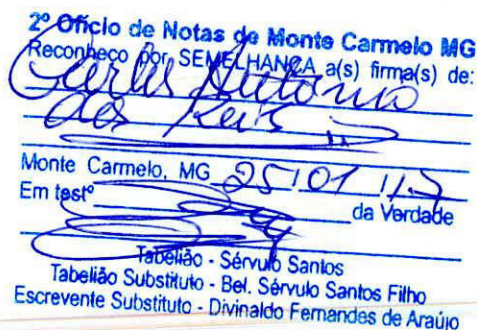 2º Ofício de Notas de Monte Carmelo MG
Reconheço por SEMELHANÇA a(s) firma(s) de:
Carlos Antônio
dos Reis
Monte Carmelo, MG 25/01/17
Em testº da Verdade
Tabelião - Sérvulo Santos
Tabelião Substituto - Bel. Sérvulo Santos Filho
Escrevente Substituto - Divinaldo Fernandes de Araújo